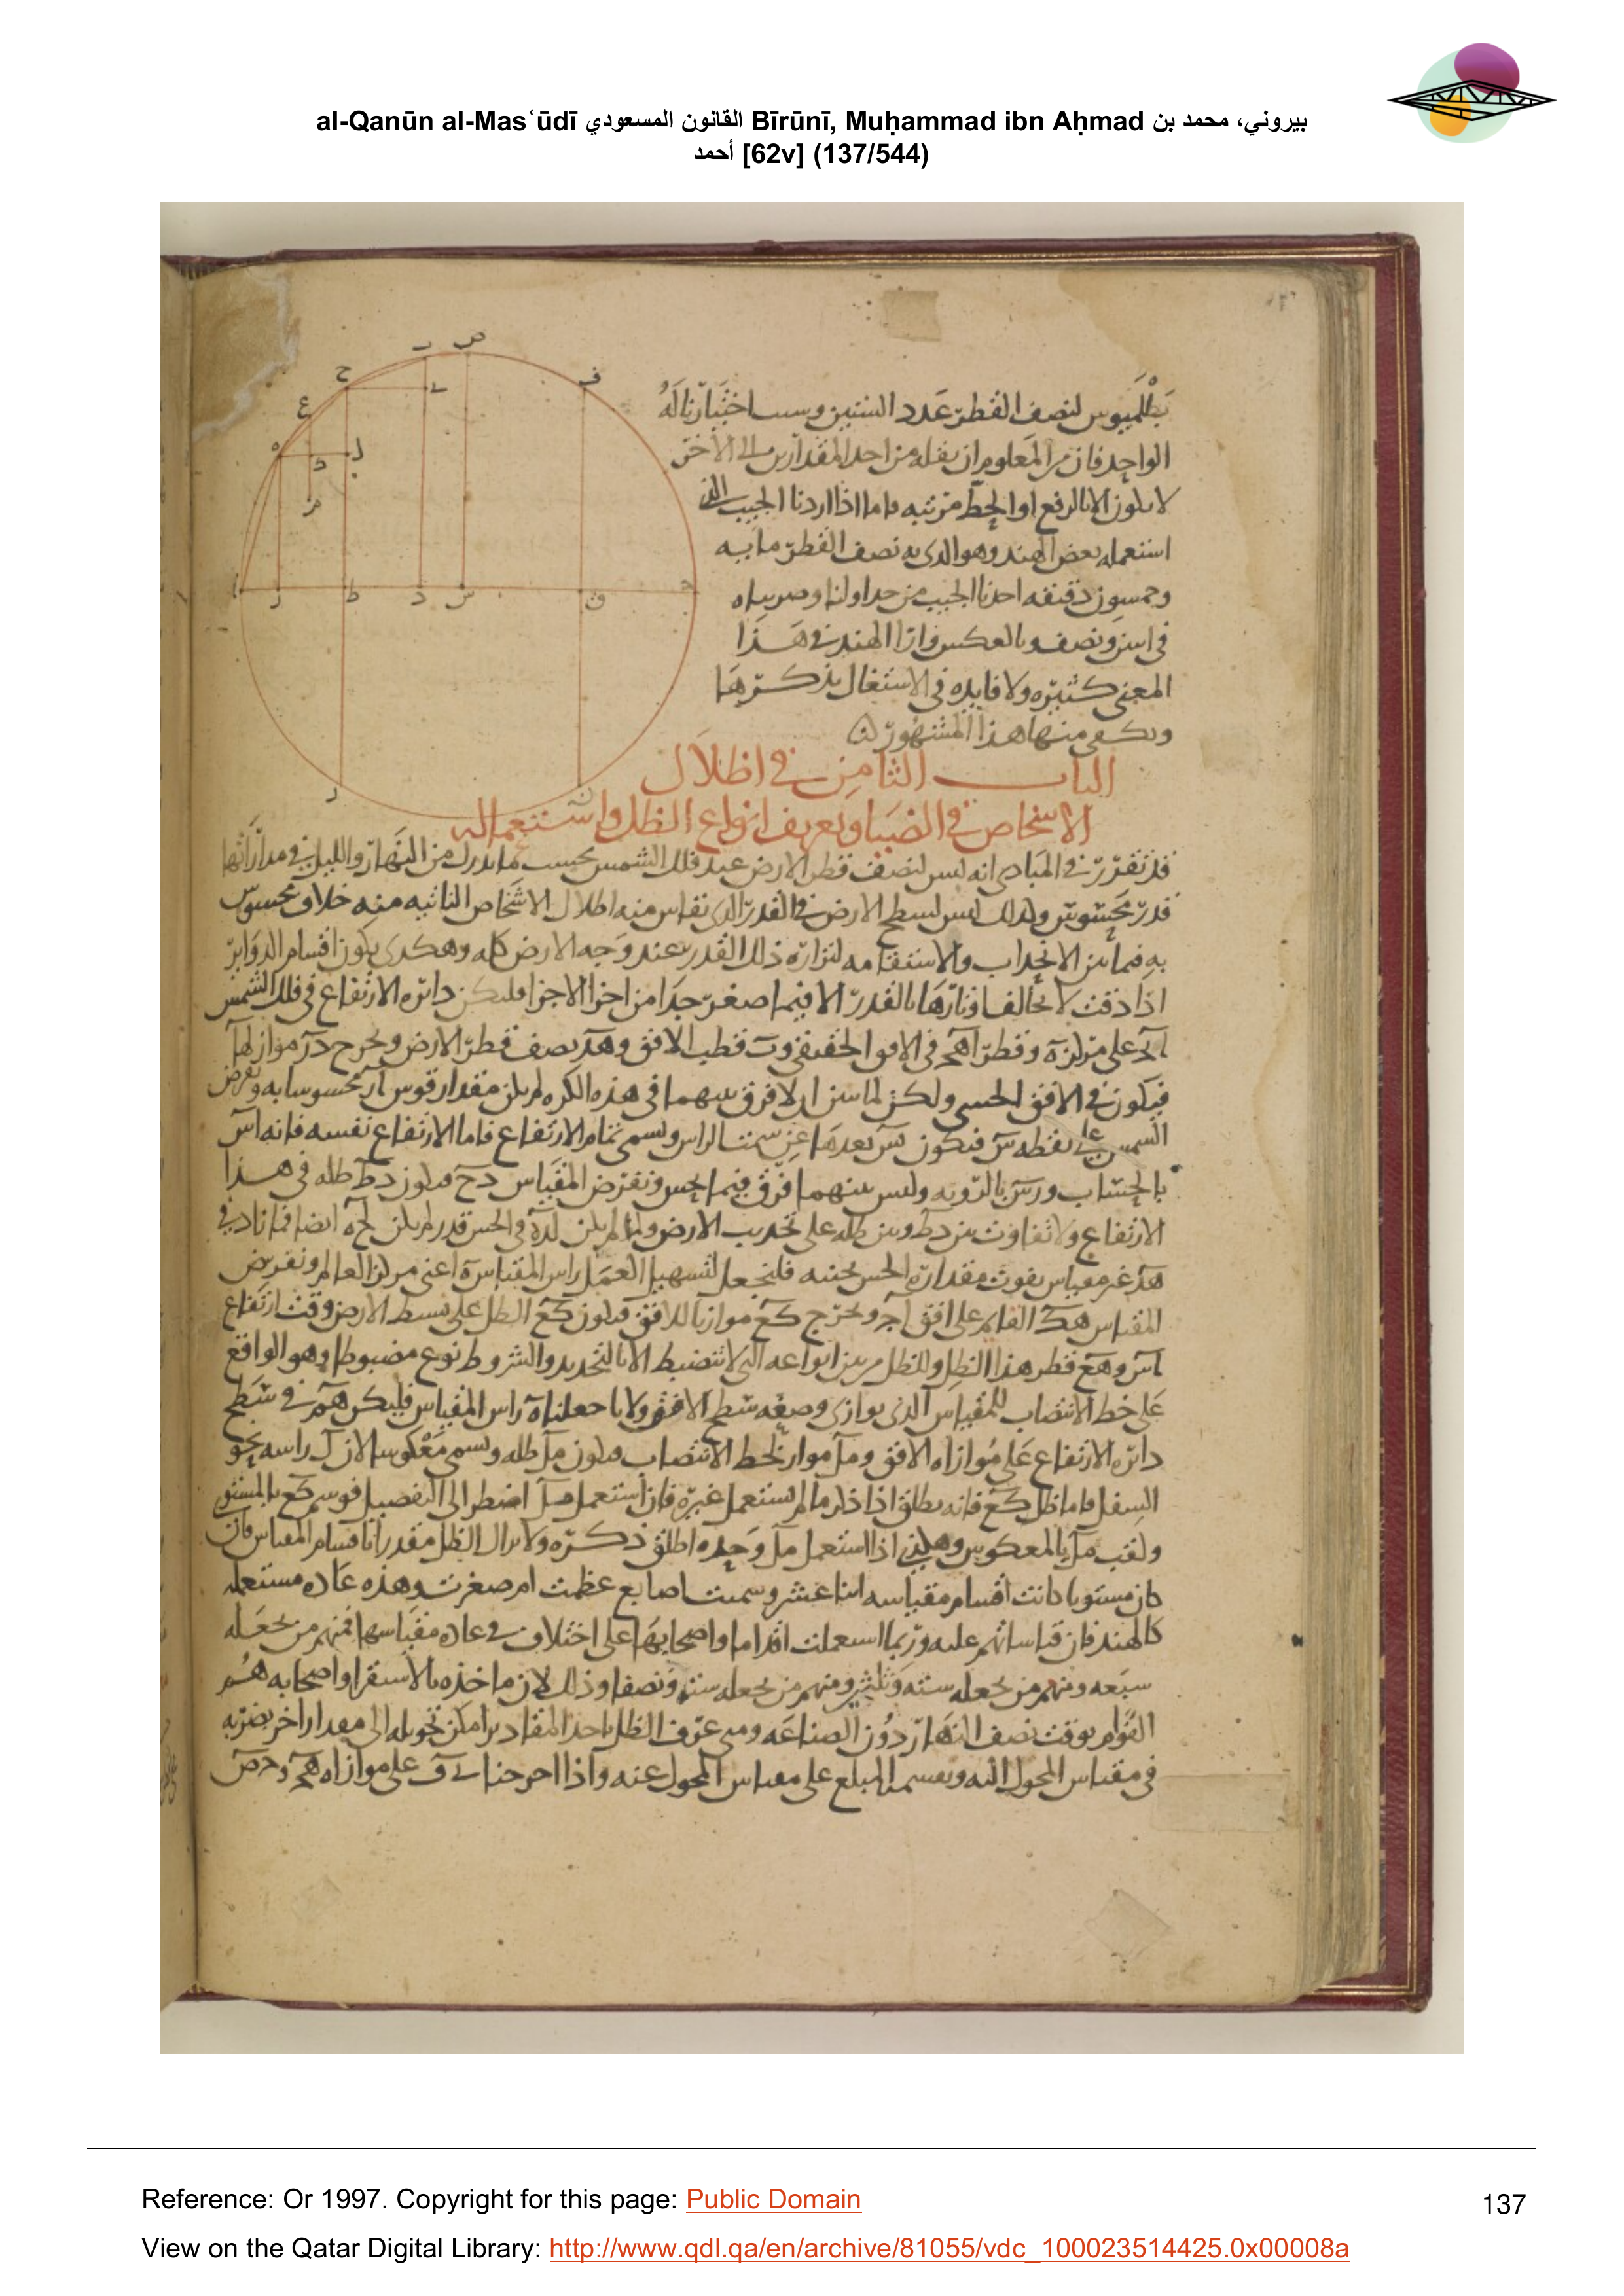 al-Qanūn al-Masʿūdī القانون المسعودي Bīrūnī, Muḥammad ibn Aḥmad بيروني، محمد بن
أحمد [62v] (137/544)
بطلميوس لنصف القطر عدد الستين وسبب اختيارنا له
الواحد فان من المعلوم ان نقله من احد المقدارين الى الاخر
لا يكون الا بالرفع او الحط مرتبه فاما اذا اردنا الجيب الذي
استعمله بعض الهند وهو الذي به نصف القطر مايه
وخمسون دقيقه اخذنا الجيب من جداولنا وضربناه
في اثنين ونصف وبالعكس وارا الهند في هذا
المعنى كثيره ولا فايده في الاشتغال بذكرها
ويكفي منها هذا المشهور
الباب الثامن في اظلال
الاشخاص في الضيا وتعريف انواع الظل واستعماله
قد تقرر في المبادي انه ليس لنصف قطر الارض عند فلك الشمس بحسب ما يدرك من النهار والليل في مداراتها
قدر محسوس ولذلك ليس لسطح الارض في القدر الذي تقاس منه اظلال الاشخاص الثابته منه خلاف محسوس
به فيما بين الانحداب والاستقامه لنزاره ذلك القدر عند وجه الارض كله وهكذى يكون اقسام الدواير
اذا دقت لا تخالف اوتارها بالقدر الا فيما صغر جدا من اجزا الاجزا فليكن دائره الارتفاع في فلك الشمس
على مركز ه وقطر اهح في الافق الحقيقي و قطب الافق وهد نصف قطر الارض ونخرج در موازيا لها
فيكون في الافق الحسي ولكن لما تبين ان لا فرق بينهما في هذه الكره لم يكن مقدار قوس ار محسوسا به ونفرض
الشمس على نقطه س فيكون بعدها عن سمت الراس ويسمى تمام الارتفاع فاما الارتفاع نفسه فانه اس
بالحساب ورس بالرويه وليس بينهما فرق فيما يحس ونفرض المقياس دح فيكون دط ظله في هذا
الارتفاع ولا تفاوت بين دط وبين ظله على تحديب الارض ولما لم يكن لده في الحس قدر لم يكن لحه ايضا فما زاد في
هد غير مقياس يفوت مقداره الحس بجنبه فلنجعل لتسهيل العمل راس المقياس ه اعني مركز العالم ونفرض
المقياس هك القائم على افق اح ونخرج كع موازيا للافق فيكون كع الظل على بسيط الارض وقت ارتفاع
اس وهع قطر هذا الظل وللظل من بين انواعه التي لا تنضبط الا بالتحديد والشروط نوع مضبوط وهو الواقع
على خط الانتصاب للمقياس الذي يوازي وضعه سطح الافق ولانا جعلنا ه راس المقياس فليكن هم في سطح
دائره الارتفاع على موازاه الافق ومل مواز لخط الانتصاب فيكون مل ظله ويسمى معكوسا لان ل راسه نحو
السفل فاما ظل كع فانه يطلق اذا ذكر ما لم يستعمل غيره فان استعمل مل اضطر الى التفصيل فوسم كع بالمستوي
ولقب مل بالمعكوس وهكذى اذا استعمل مل وحده اطلق ذكره ولا يزال الظل مقدرا باقسام المقياس فان
كان مستويا كانت اقسام مقياسه اثنا عشر وسميت اصابع عظمت ام صغرت وهذه عاده مستعمله
كالهند فان قياساتهم عليه وربما استعملت اقداما واصحابها على اختلاف في عاده مقياسها فمنهم من يجعله
سبعه ومنهم من يجعله سته وثلثين ومنهم من يجعله سته ونصفا وذلك لان ماخذه بالاستقرا واصحابه هم
القوام بوقت نصف النهار دون الصناعه ومتى عرف الظل باحد المقادير امكن تحويله الى مقدار اخر بضربه
في مقياس المحول اليه وبقسمه المبلغ على مقياس المحول عنه واذا اخرجنا
Reference: Or 1997. Copyright for this page: Public Domain
137
View on the Qatar Digital Library: http://www.qdl.qa/en/archive/81055/vdc_100023514425.0x00008a